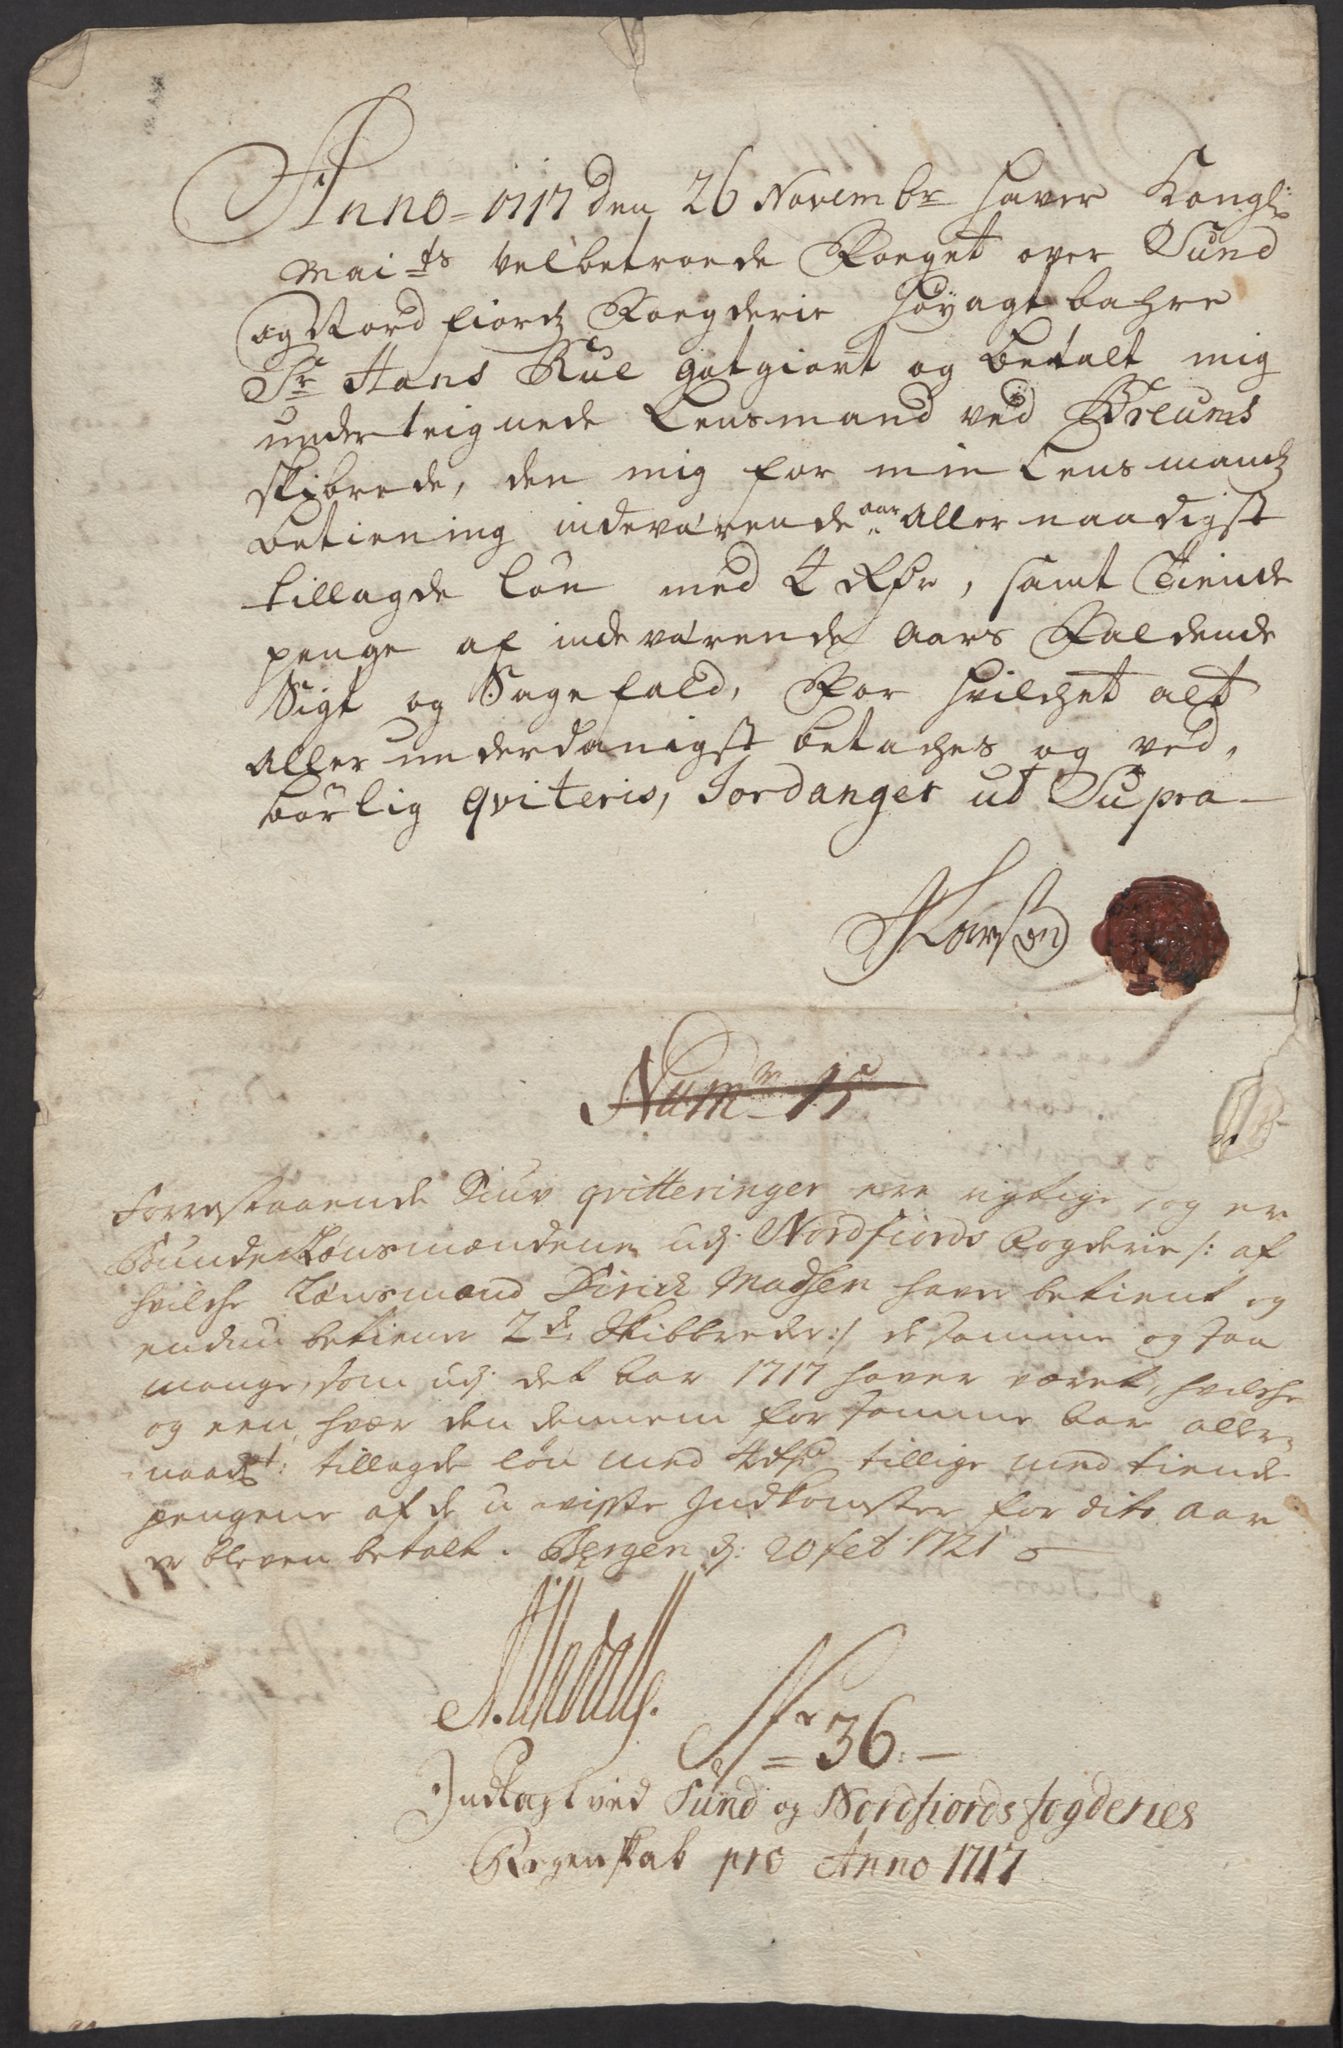 Anno = 1717 den 26 Novembr haver Kongl:
Mai:ts velbetroede Foeget over Sund
og Nordfiords Foegderie Höyagtbahre
Sr Hans Rül gotgiort og betalt mig
underteignede Lensmand ved Breums
skibrede, den mig for min Lensmands
betiening indeværende aar aller naadigst
tillagde Lön med 4 Rdr, samt Tiende
penge af indeværende Aars Faldende
Sigt og Sagefald, For hvilchet alt
aller underdanigst betaches og ved,
börlig qviteris, Jordanger ut Supra

Numr 15

Forrestaaende qvitteringer ere rigtige, og er
Bunde Lönsmændene udj Nordfiords Fogderie /: af
hvilche Lönsmand Dirick Madsen haver betient og
endnu betiener 2de Skibbreder :/ de samme og saa
mange, som udj det Aar 1717 haver været, hvilche
og een hvær den dennem for samme Aar aller=
naadt: tillagde Lön med 4 tillige med tiende
pengene af de u-visse Indkomster for dito Aar
er bleven betalt. Bergen d: 20 feb 1721

Nr = 36:
Indlagt ved Sund og Nordfiords fogderies
Regenskab pro Anno 1717